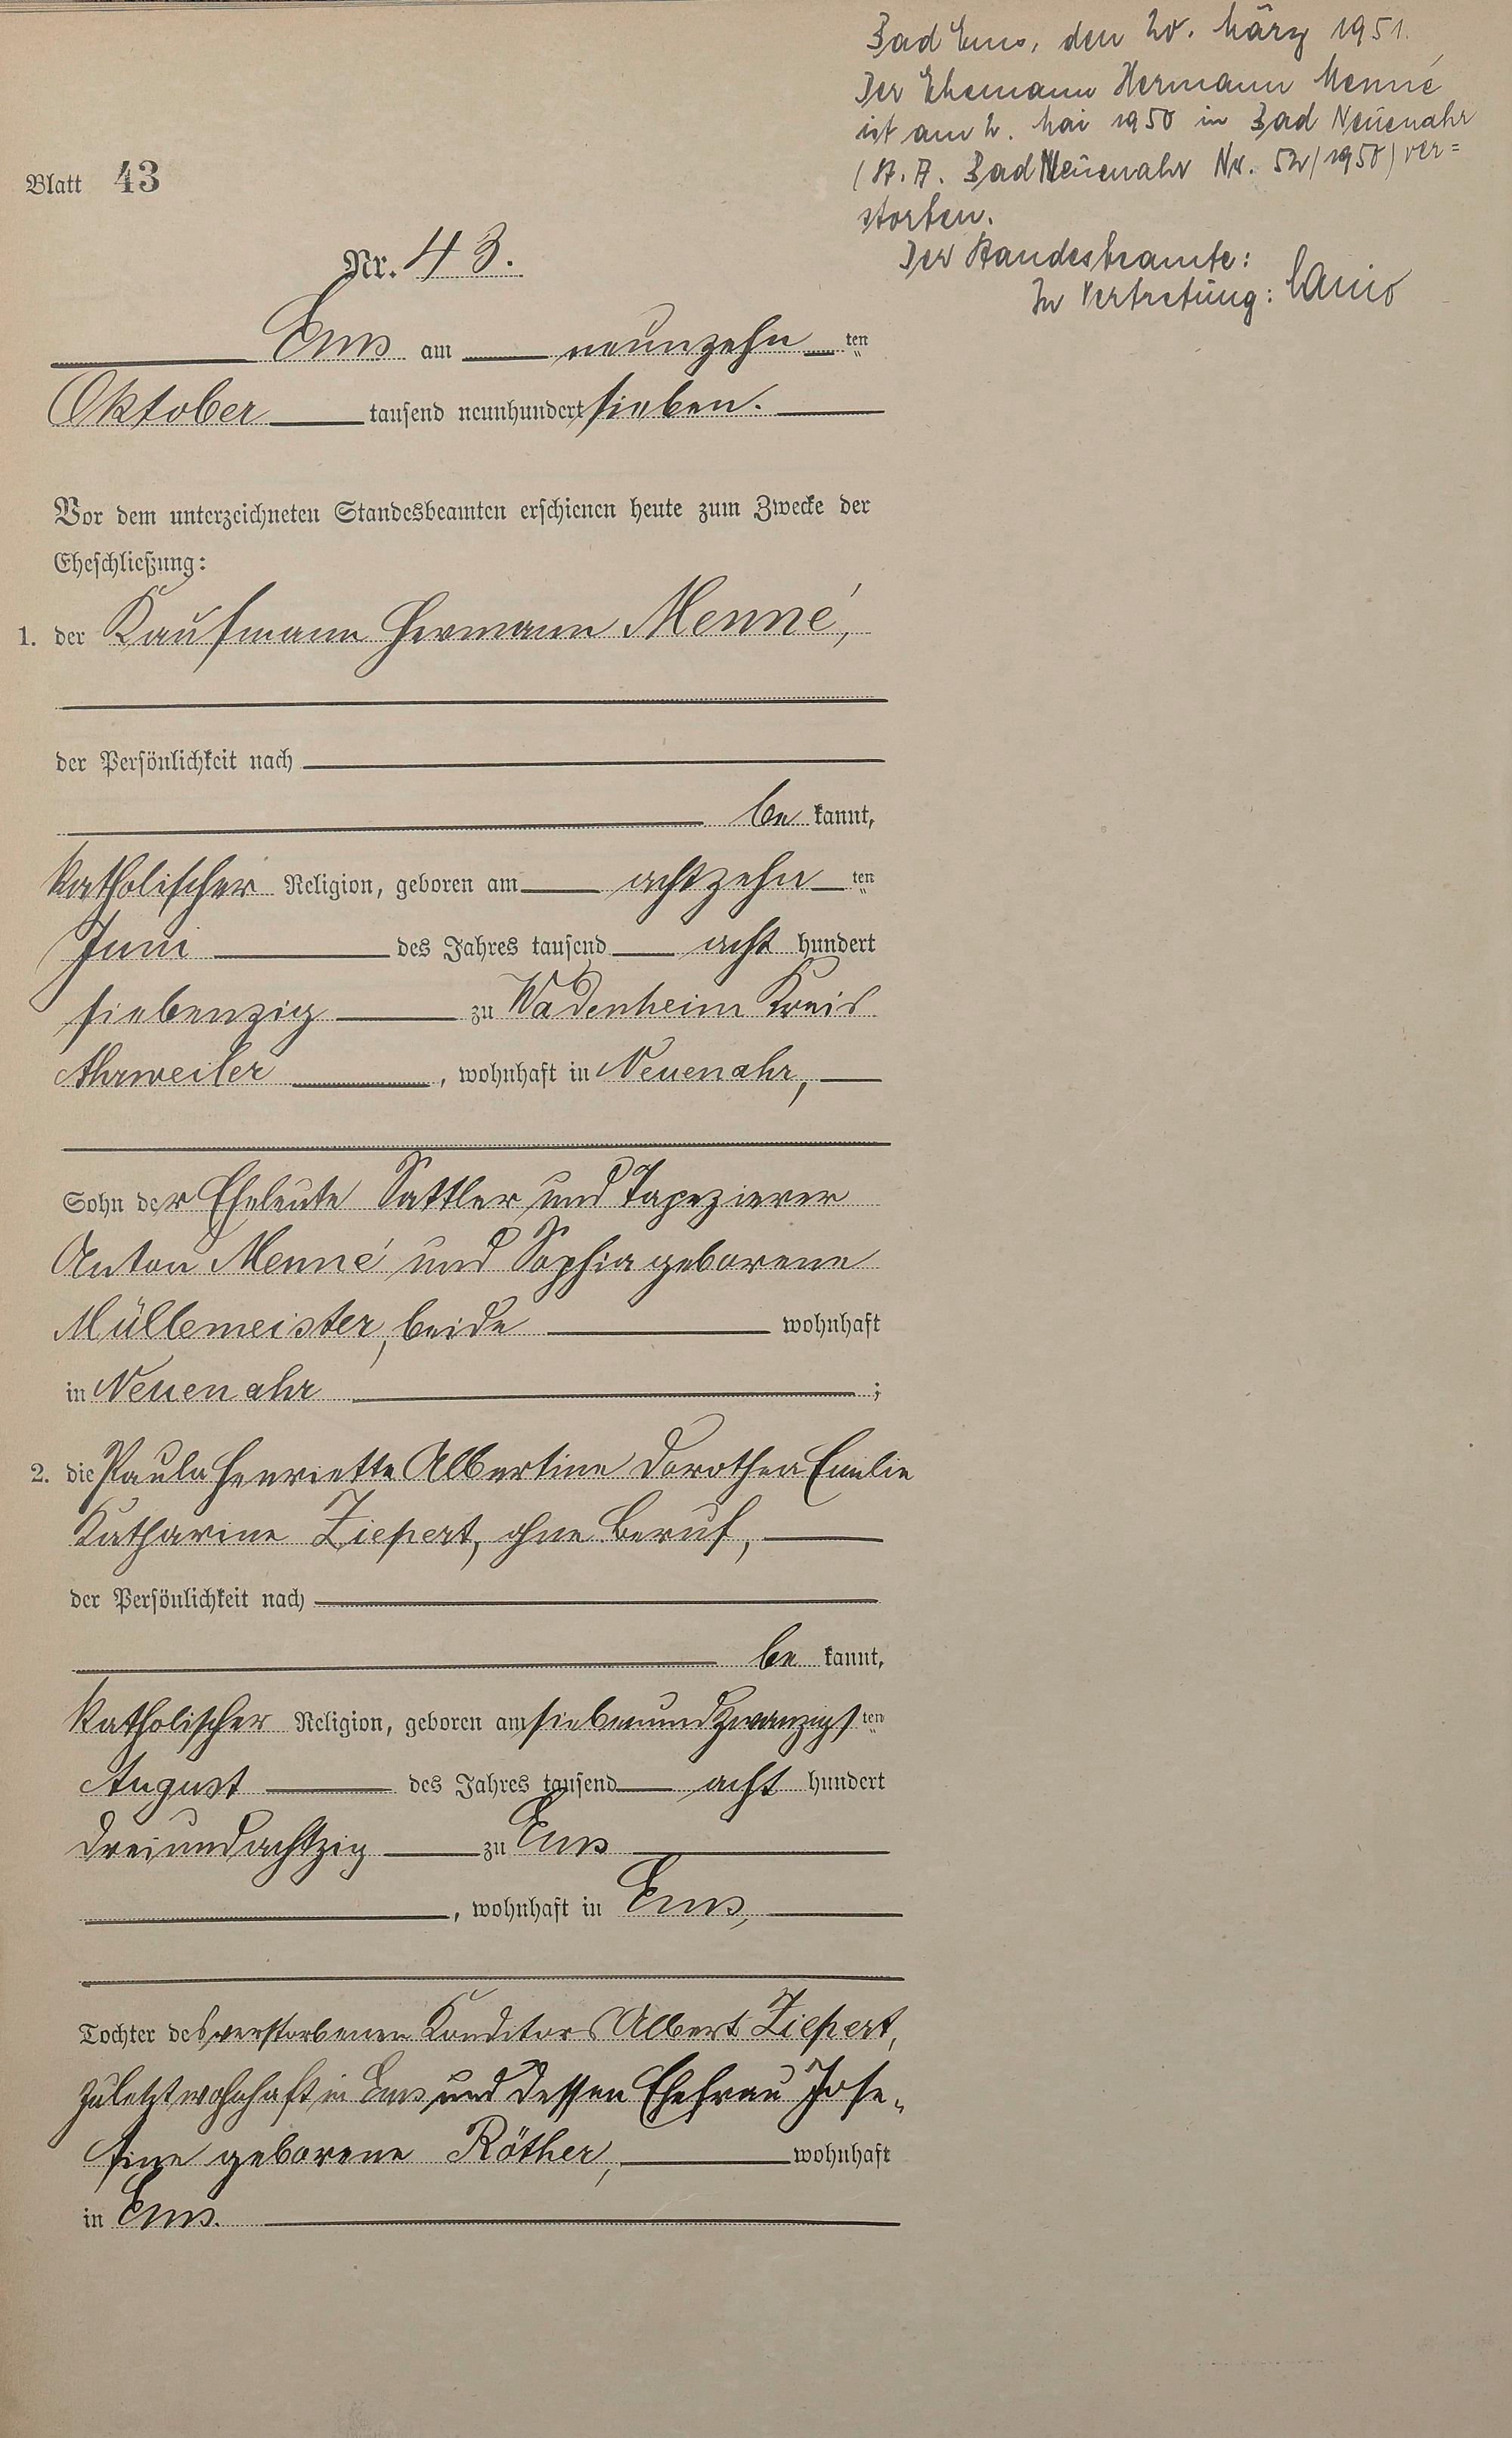 Bad Ems, den 20. März 1951.
Der Ehemann Hermann Menné
ist am 2. Mai 1950 in Bad Neuenahr
(St. A. Bad Neuenahr Nr. 52/1950) ver=
storben.
Der Standesbeamte:
In Vertretung:
Blatt 43
Nr. 43.
Ems am neunzehn ten
Oktober tausend neunhundert sieben.
Vor dem unterzeichneten Standesbeamten erschienen heute zum Zwecke der
Eheschließung:
1. der Kaufmann Hermann Menné,
der Persönlichkeit nach
be kannt,
katholischer Religion, geboren am achtzehn ten
Juni des Jahres tausend acht hundert
siebenzig zu Wadenheim Kreis
Ahrweiler, wohnhaft in Neuenahr,
Sohn der Eheleute Sattler und Tapezierer
Anton Menné und Sophia geborene
Müllemeister, beide wohnhaft
in Neuenahr ;
2. die Paula Henriette Albertine Dorothea Emilie
Katharine Ziepert, ohne Beruf,
der Persönlichkeit nach
be kannt,
katholischer Religion, geboren am siebenundzwanzigst ten
August des Jahres tausend acht hundert
dreiundachtzig zu Ems
, wohnhaft in Ems,
Tochter des verstorbenen Konditors Albert Ziepert,
zuletzt wohnhaft in Ems und dessen Ehefrau Jose-
fine geborene Röther, wohnhaft
in Ems.